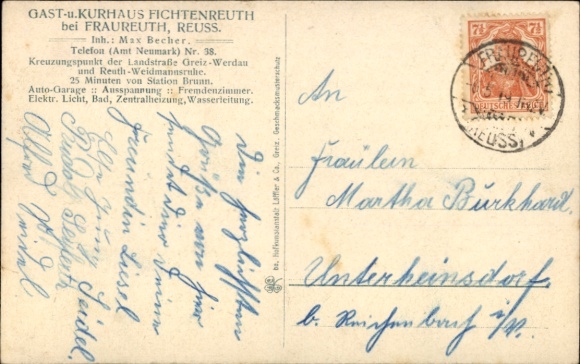 GAST-u.KURHAUS FICHTENREUTH
bei FRAUREUTH, REUSS.
Inh.: Max Becher.
Telefon (Amt Neumark) Nr. 38.
Kreuzungspunkt der Landstraße Greiz-Werdau
und Reuth-Weidmannsruhe.
25 Minuten von Station Brunn.
Auto-Garage :: Ausspannung :: Fremdenzimmer.
Elektr. Licht, Bad, Zentralheizung, Wasserleitung.
Die herzlichsten
Grüße von hier
sendet Dir Deine
Freundin Liesel
Seidel.
Alfred
Löffler & Co., Greiz. Geschmacksmusterschutz
7½ 7½
DEUTSCHES REICH
FRAUREUTH
(REUSS)
An
Fräulein
Martha Burkhard.
Unterheinsdorf
b. Reichenbach i/V.